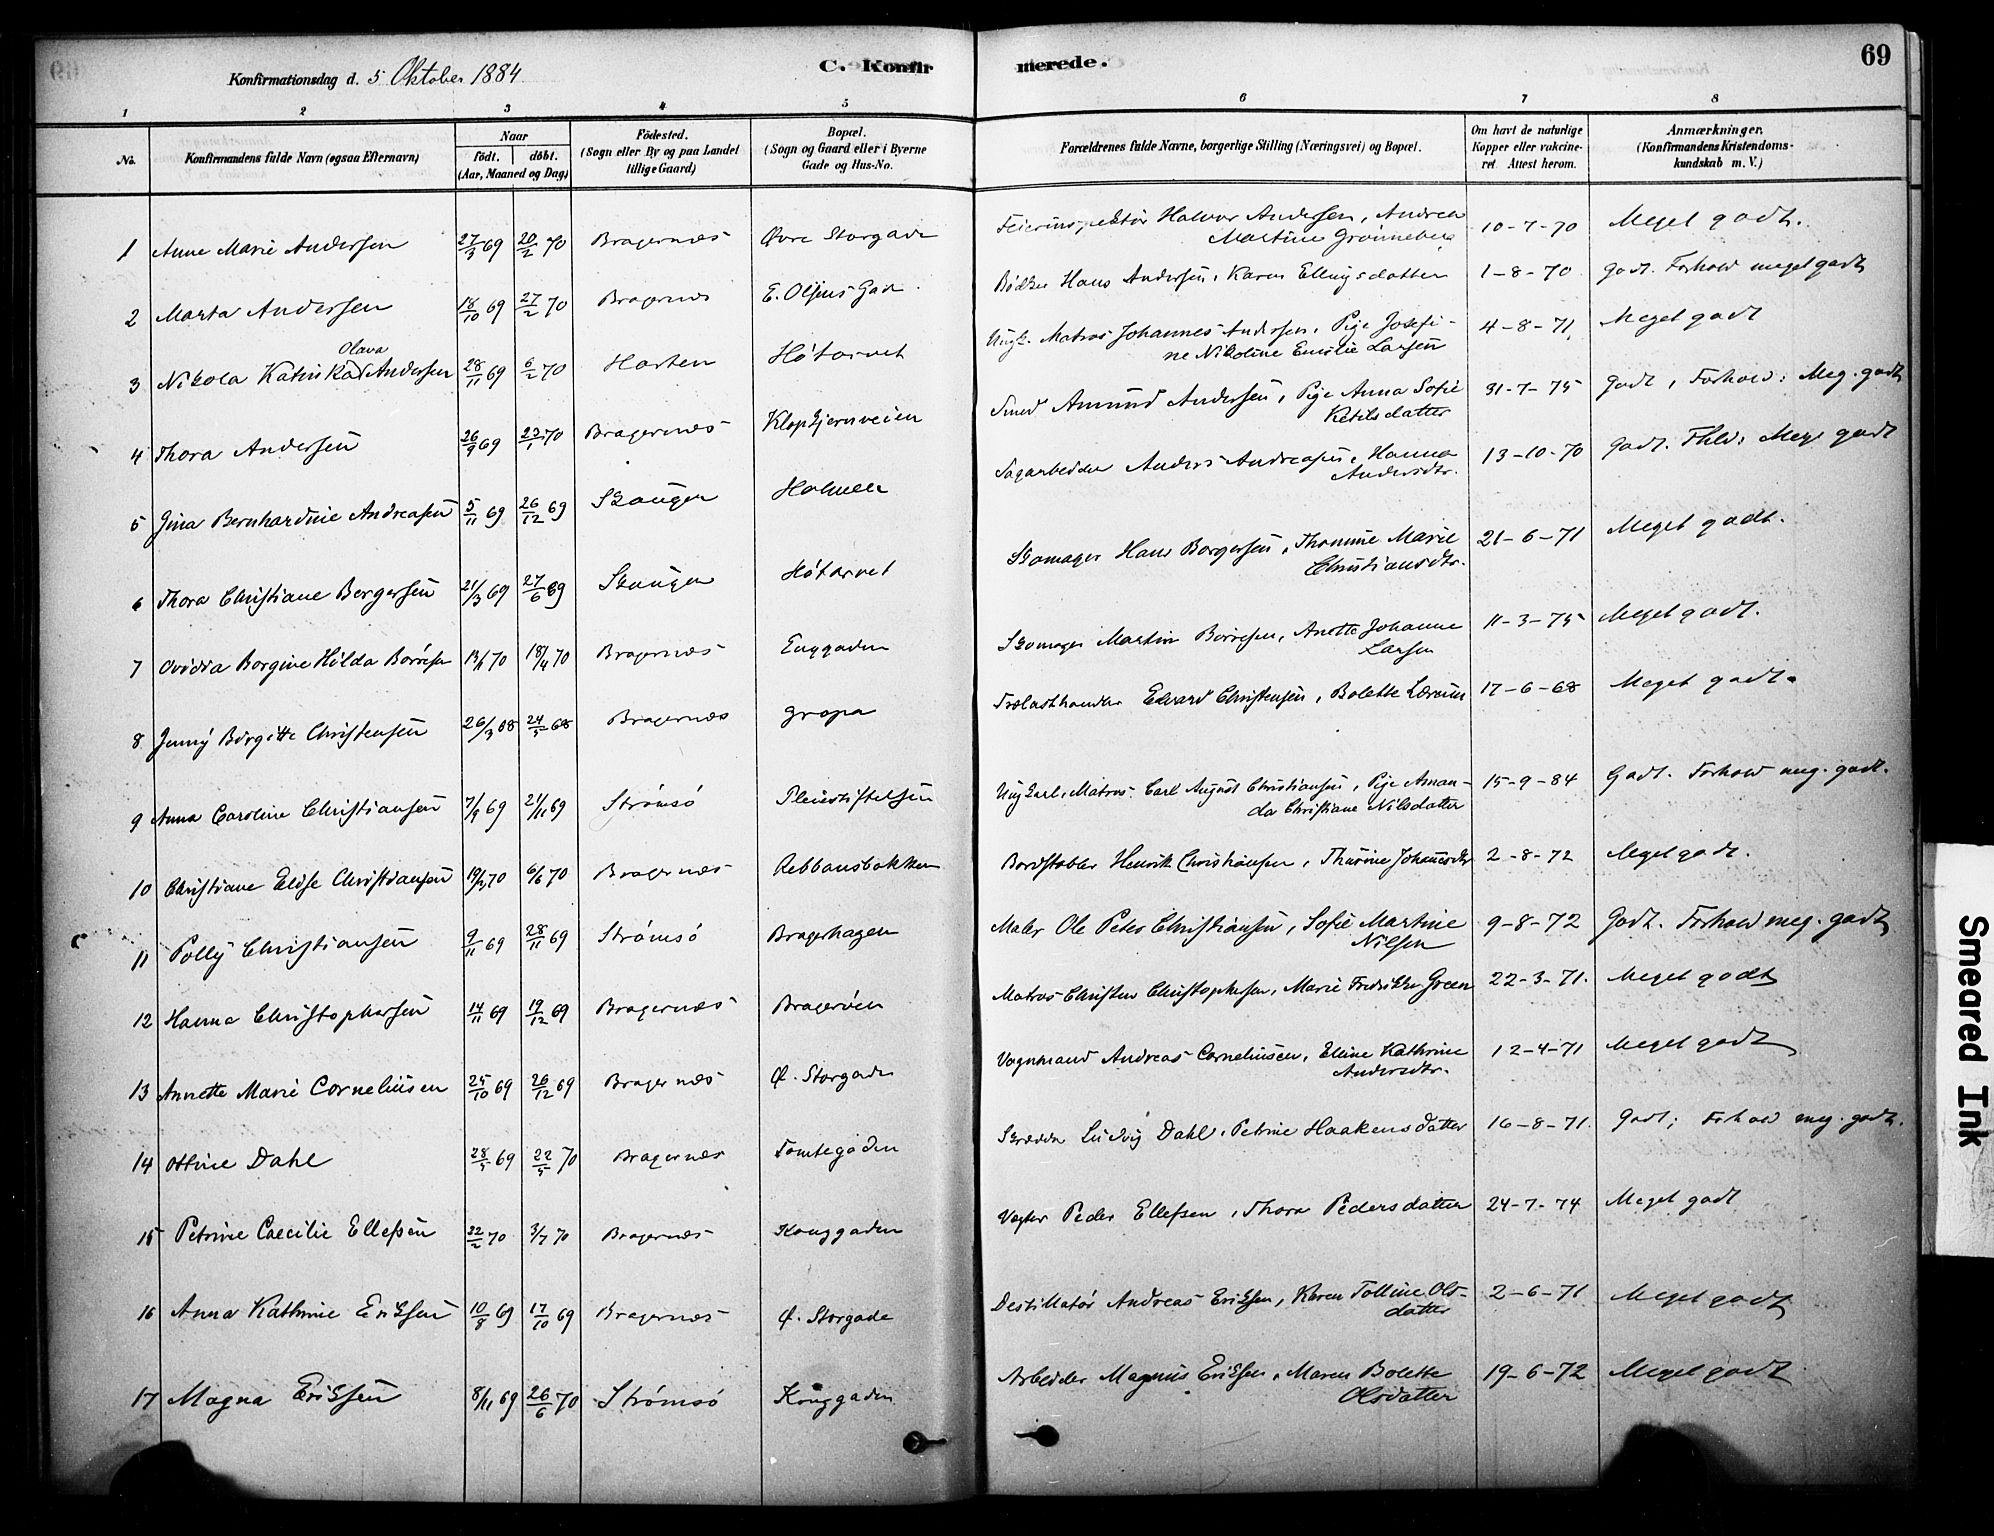 Konfirmationsdag d. 5 Oktober 1884. C. Konfirmerede. 69
1 2 3 4 5 6 7 8
No. Konfirmandens fulde Navn (ogsaa Efternavn) Naar födt. döbt. (Aar, Maaned og Dag) Födested. (Sogn eller By og paa Landet tillige Gaard) Bopæl. (Sogn og Gaard eller i Byerne Gade og Hus-No. Forældrenes fulde Navne, borgerlige Stilling (Næringsvei) og Bopæl. Om havt de naturlige Kopper eller vakcineret Attest herom. Anmærkninger. (Konfirmandens Kristendomskundskab m. V.)
1 Anne Marie Andersen 27/3 69 20/2 70 Bragernæs Øvre Storgade Feierinspektør Halvor Andersen, Andrea Martine Grønneberg 10-7-70 Meget godt.
2 Marta Andersen 18/10 69 27/2 70 Bragernes E. Olsens Gade Bødker Hans Andersen, Karen Ellingsdatter 1-8-70 Godt. Forhold meget godt
3 Nikola Katinka Olava Andersen 28/11 69 6/2 70 Horten Høtorvet Ungk. Matros Johannes Andersen, Pige Josefine Nikoline Emilie Larsen 4-8-71 Meget godt
4 Thora Andersen 26/9 69 23/1 70 Bragernæs Klopkjernveien Smed Amund Andersen, Pige Anna Sofie Ketilsdatter 31-7-75 Godt, Forhold: Meg. godt
5 Gina Bernhardine Andreasen 5/11 69 26/12 69 Skouger Holmen Sagarbeider Anders Andreasen, Hanna Andersdtr. 13-10-70 Godt. Fhld: Meget godt
6 Thora Christiane Borgersen 21/3 69 27/6 69 Skouger Høtorvet Skomager Hans Borgersen, Thomine Marie Christiansdtr. 21-6-71 Meget godt.
7 Ovidia Borgine Hilda Børresen 13/1 70 18/4 70 Bragernæs Enggaden Skomager Martin Børresen, Anette Johanne Larsen 11-3-75 Meget godt.
8 Jenny Birgitte Christensen 26/3 68 24/5 68 Bragernæs Gropa Trælasthandler Edvard Christensen, Bolette Lærum 17-6-68 Meget godt.
9 Anna Caroline Christiansen 7/9 69 21/11 69 Strømsø Pleiestiftelsen Ungkarl, Matros Carl August Christiansen, Pige Amanda Christiane Nilsdatter 15-9-84 Godt. Forhold meg. godt.
10 Christiane Elise Christiansen 19/2 70 6/6 70 Bragernæs Rebbansbakken Bordstabler Henrik Christiansen, Thorine Johannesdtr 2-8-72 Meget godt.
11 Polly Christiansen 9/11 69 28/11 69 Strømsø Bragerhagen Maler Ole Peter Christiansen, Sofie Martine Nilsen 9-8-72 Godt. Forhold meg. godt
12 Hanna Christophersen 14/11 69 19/12 69 Bragernæs Bragerøen Matros Christen Christophersen, Marie Fredrikke Green 22-3-71. Meget godt
13 Annette Marie Corneliusen 25/10 69 26/12 69 Bragernæs Ø. Storgade Vognmand Andreas Corneliusen, Eline Kathrine Andersdtr. 12-4-71 Meget godt
14 Ottine Dahl 28/5 69 22/5 70 Bragernæs Tomtegaden Skrædder Ludvig Dahl, Petrine Haakensdatter 16-8-71. Godt; Forhold meg. godt.
15 Petrine Caecilie Ellefsen 22/2 70 3/7 70 Bragernæs Konggaden Vægter Peder Ellefsen, Thora Pedersdatter 24-7-74 Meget godt
16 Anna Kathrine Eriksen 10/8 69 17/10 69 Bragernæs Ø. Storgade Destillatør Andreas Eriksen, Karen Tolline Olsdatter 2-6-71 Meget godt
17 Magna Eriksen 8/11 69 26/6 70 Strømsø Konggaden Arbeider Magnus Eriksen, Maren Bolette Olsdatter 19-6-72 Meget godt
Smeared Ink